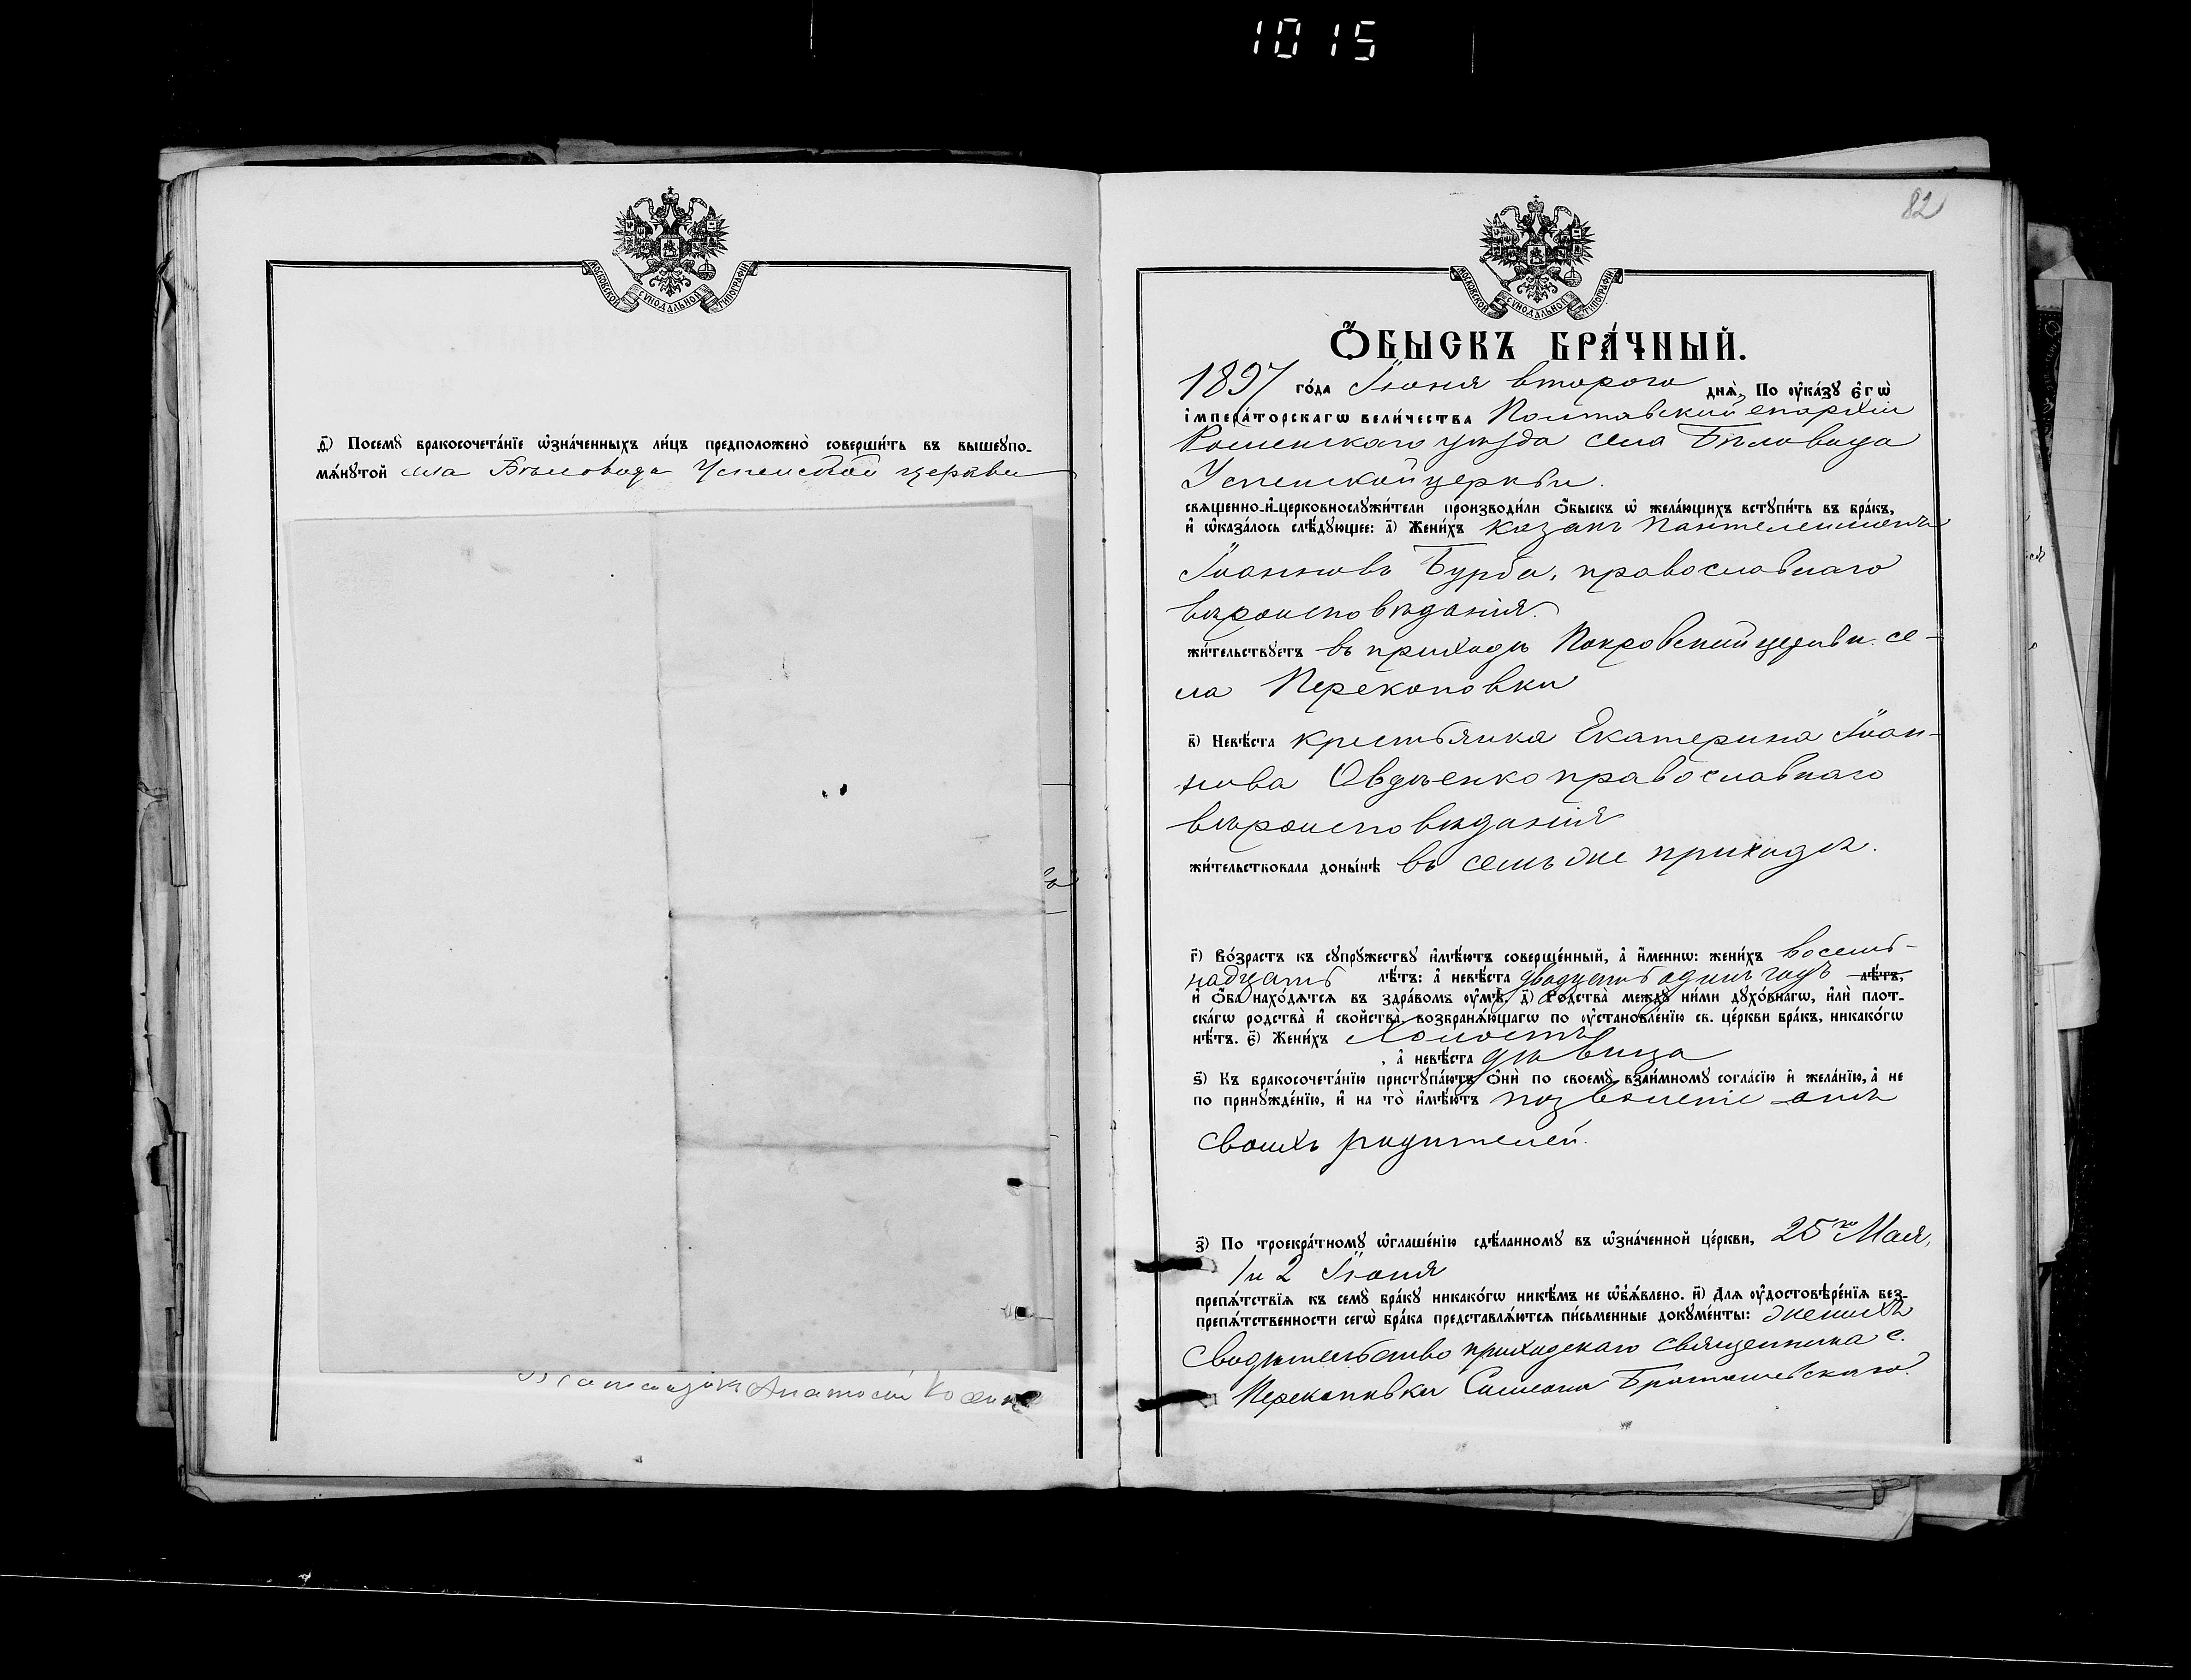 1015
МОСКОВСКОЙ СѴНОДАЛЬНОЙ ТИПОГРАФІИ
д҃) Посемꙋ̀ бракосочета́нїе ѡ҆зна́ченныхъ ли́цъ предположено̀ соверши́ть въ вышеꙋпо-
мѧ́нꙋтой села Бѣловода Успенской церкви
82
МОСКОВСКОЙ СѴНОДАЛЬНОЙ ТИПОГРАФІИ
Ѻ҆́БЫСКЪ БРА́ЧНЫЙ.
1897 го́да Іюня второго днѧ̀, По ᲂу҆ка́зꙋ є҆гѡ̀
і҆мпера́торскагѡ вели́чества Полтавской епархіи
Роменскаго уѣзда села Бѣловода
Успенской церкви.
свѧщенно-и҆-церковнослꙋжи́тели производи́ли ѻ҆́быскъ ѡ҆ жела́ющихъ встꙋпи́ть въ бра́къ,
и҆ ѡ҆каза́лось слѣ́дꙋющее: а҃) Жени́хъ казакъ Пантелеимонъ
Іоанновъ Бурба, православнаго
вѣроисповѣданія.
жи́тельствꙋетъ въ приходѣ Покровской церкви се-
ла Перекоповки
в҃) Невѣ́ста крестьянка Екатерина Іоан-
нова Овдѣенко православнаго
вѣроисповѣданія
жи́тельствовала доны́нѣ въ семъ же приходѣ.
г҃) Во́зрастъ къ сꙋпрꙋ́жествꙋ и҆мѣ́ютъ соверше́нный, а҆ и҆́меннѡ: жени́хъ восем-
надцать лѣ́тъ: а҆ невѣ́ста двадцать одинъ годъ лѣ́тъ,
и҆ ѻ҆́ба нахо́дѧтсѧ въ здра́вомъ ᲂу҆мѣ̀. д҃) Родства̀ междꙋ̀ ни́ми дꙋхо́внагѡ, и҆лѝ плот-
ска́гѡ родства̀ и҆ сво́йства̀, возбранѧ́ющагѡ по ᲂу҆становле́нїю св. це́ркви бра́къ, никако́гѡ
нѣ́тъ. є҃) Жени́хъ холостъ
, а҆ невѣ́ста дѣвица
ѕ҃) Къ бракосочета́нїю пристꙋпа́ютъ ѻ҆нѝ по своемꙋ̀ взаи́мномꙋ согла́сїю и҆ жела́нїю, а҆ не
по принꙋжде́нїю, и҆ на то̀ и҆мѣ́ютъ позволеніе отъ
своихъ родителей.
з҃) По троекра́тномꙋ ѡ҆глаше́нїю сдѣ́ланномꙋ въ ѡ҆зна́ченной це́ркви, 25го Мая,
1 и 2 Іюня
препѧ́тствїѧ къ семꙋ̀ бра́кꙋ никако́гѡ никѣ́мъ не ѡ҆б̾ѧ́влено. и҃) Длѧ ᲂу҆достовѣре́нїѧ без-
препѧ́тственности сегѡ̀ бра́ка представлѧ́ютсѧ пи́сьменные докꙋме́нты: жениха
Свидѣтельство приходскаго священника с.
Перекоповки Симеона Браташевскаго.